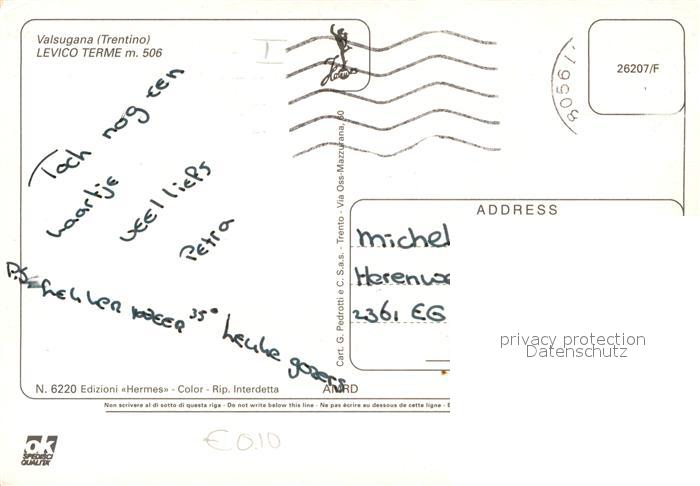 Valsugana (Trentino)
LEVICO TERME m. 506
Hermes
26207/F
Toch nog een
kaartje
veel liefs
Petra
P.S.
35° leuke gozers
Cart. G. Pedrotti e C. S.a.s. - Trento - Via Oss-Mazzurana, 60
ADDRESS
Michel
2361 EG
privacy protection
Datenschutz
N. 6220 Edizioni «Hermes» - Color - Rip. Interdetta
Non scrivere al di sotto di questa riga - Do not write below this line - Ne pas écrire au dessous de cette ligne -
ok
SPEDISCI
QUALITA'
€ 0.10